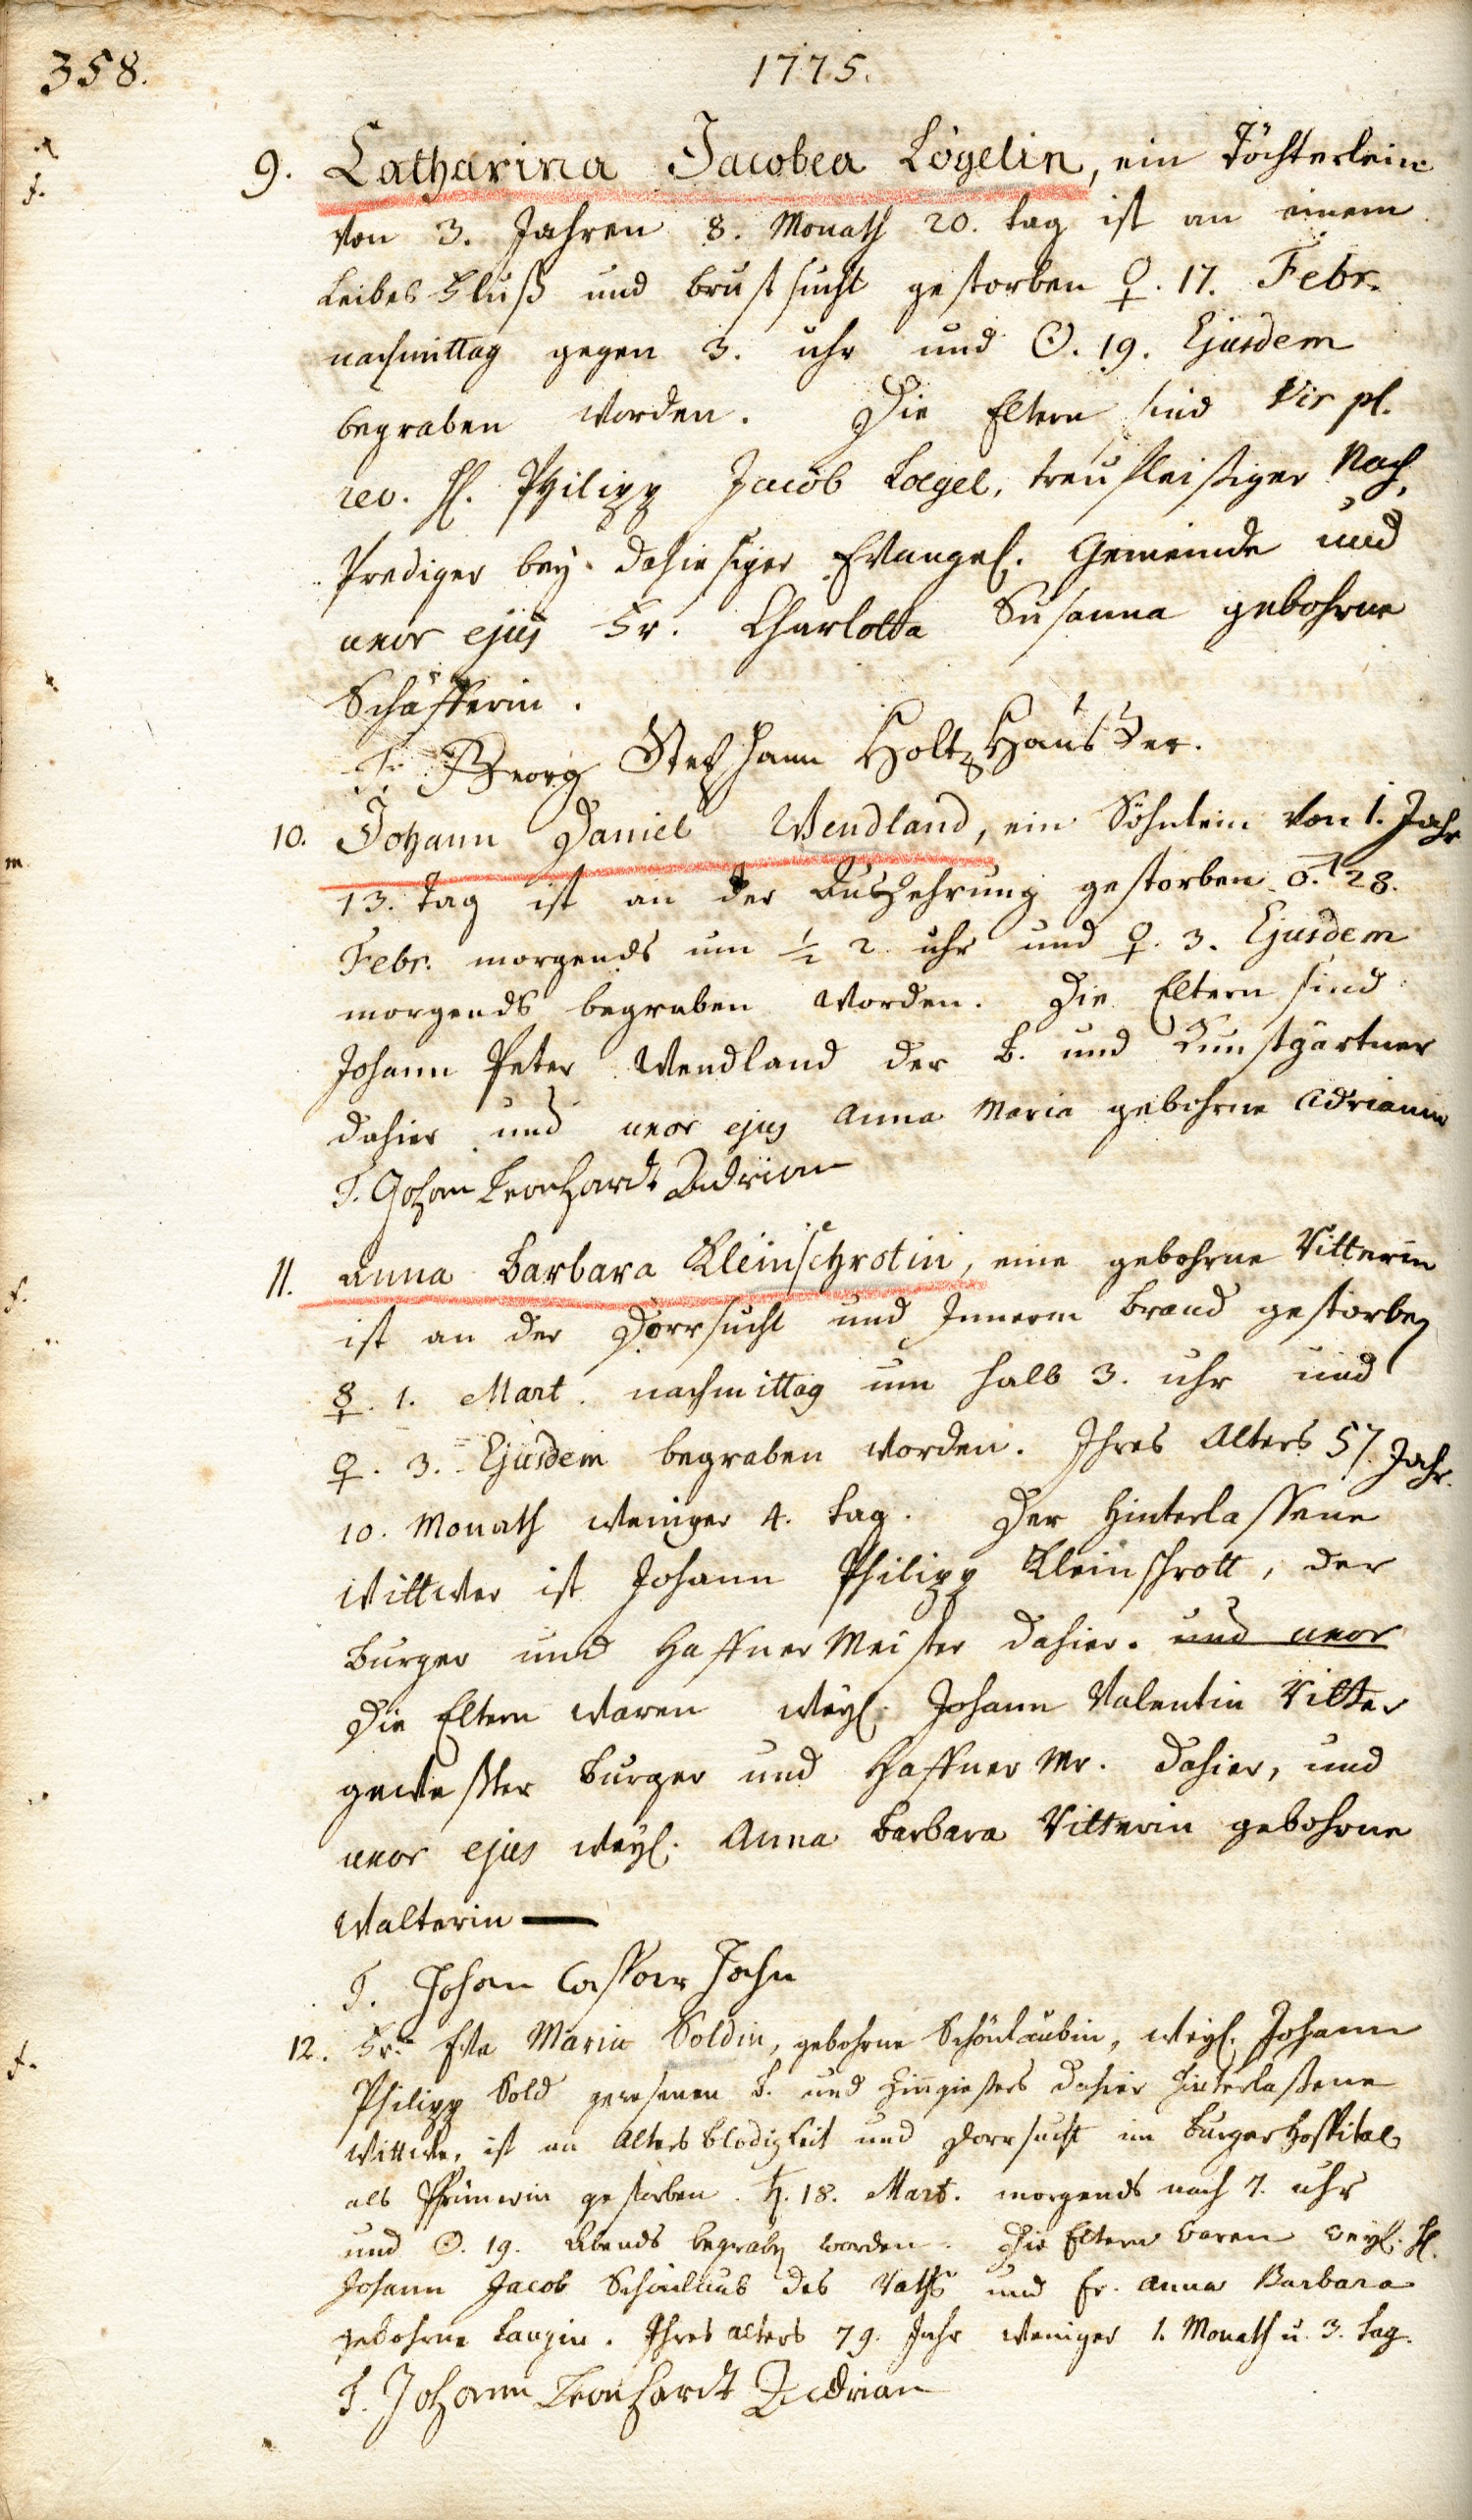 358.
1775.
9. Catharina Jacobea Lögelin, ein Töchterlein
von 3. Jahren 8. Monath 20. tag ist an einem
Leibes Fluß und brust sucht gestorben ♀. 17. Febr.
nachmittag gegen 3. uhr und ☉. 19. Ejusdem
begraben worden. Die Eltern sind Vir pl.
rev. H. Philipp Jacob Loegel, treufleißiger Nach,
Prediger bey dahiesiger Evangel. Gemeinde und
uxor ejus Fr. Charlotta Susanna gebohrne
Schäfferin.
T. Georg Stephann Holtzhaußer.
10. Johann Daniel Wendland, ein Söhnlein von 1. Jahr
13. Tag ist an der Auszehrung gestorben ♂. 28.
Febr. morgends um ½ 2 uhr und ♀. 3. Ejusdem
morgends begraben worden. Die Eltern sind
Johann Peter Wendland der B. und Kunstgärtner
dahier und uxor ejus Anna Maria gebohrne Adrianin
T. Johan Leonhardt Adrian
11. Anna Barbara Kleinschrotin, eine gebohrne Vitterin
ist an der Dörrsucht und Innerm brand gestorben
☿. 1. Mart. nachmittag um halb 3. uhr und
♀. 3. Ejusdem begraben worden. Ihres Alters 57. Jahr.
10. Monath weniger 4. tag. Der hinterlassene
Wittwer ist Johann Philipp Kleinschrott, der
Burger und Haffner Meister dahier. und uxor
Die Eltern waren weyl. Johann Valentin Vitter
gewesster Burger und Haffner Mr. dahier, und
uxor ejus weyl. Anna Barbara Vitterin gebohrne
Walterin —
T. Johan Casper Jahn
12. Fr. Eva Maria Soldin, gebohrne Schönlaubin, weyl. Johann
Philipp Sold gewesenen B. und Zinngießers dahier hinterlaßene
Wittwe, ist an Alters blödigkeit und Dörrsucht im Burger Hospital
als Pfrünerin gestorben ♄. 18. Mart. morgends nach 7. uhr
und ☉. 19. Abends begraben worden. Die Eltern waren weyl. H.
Johann Jacob Schönlaub des Raths und Fr. Anna Barbara
gebohrne Langin. Ihres alters 79. Jahr weniger 1. Monath u. 3. tag.
T. Johann Leonhardt Adrian